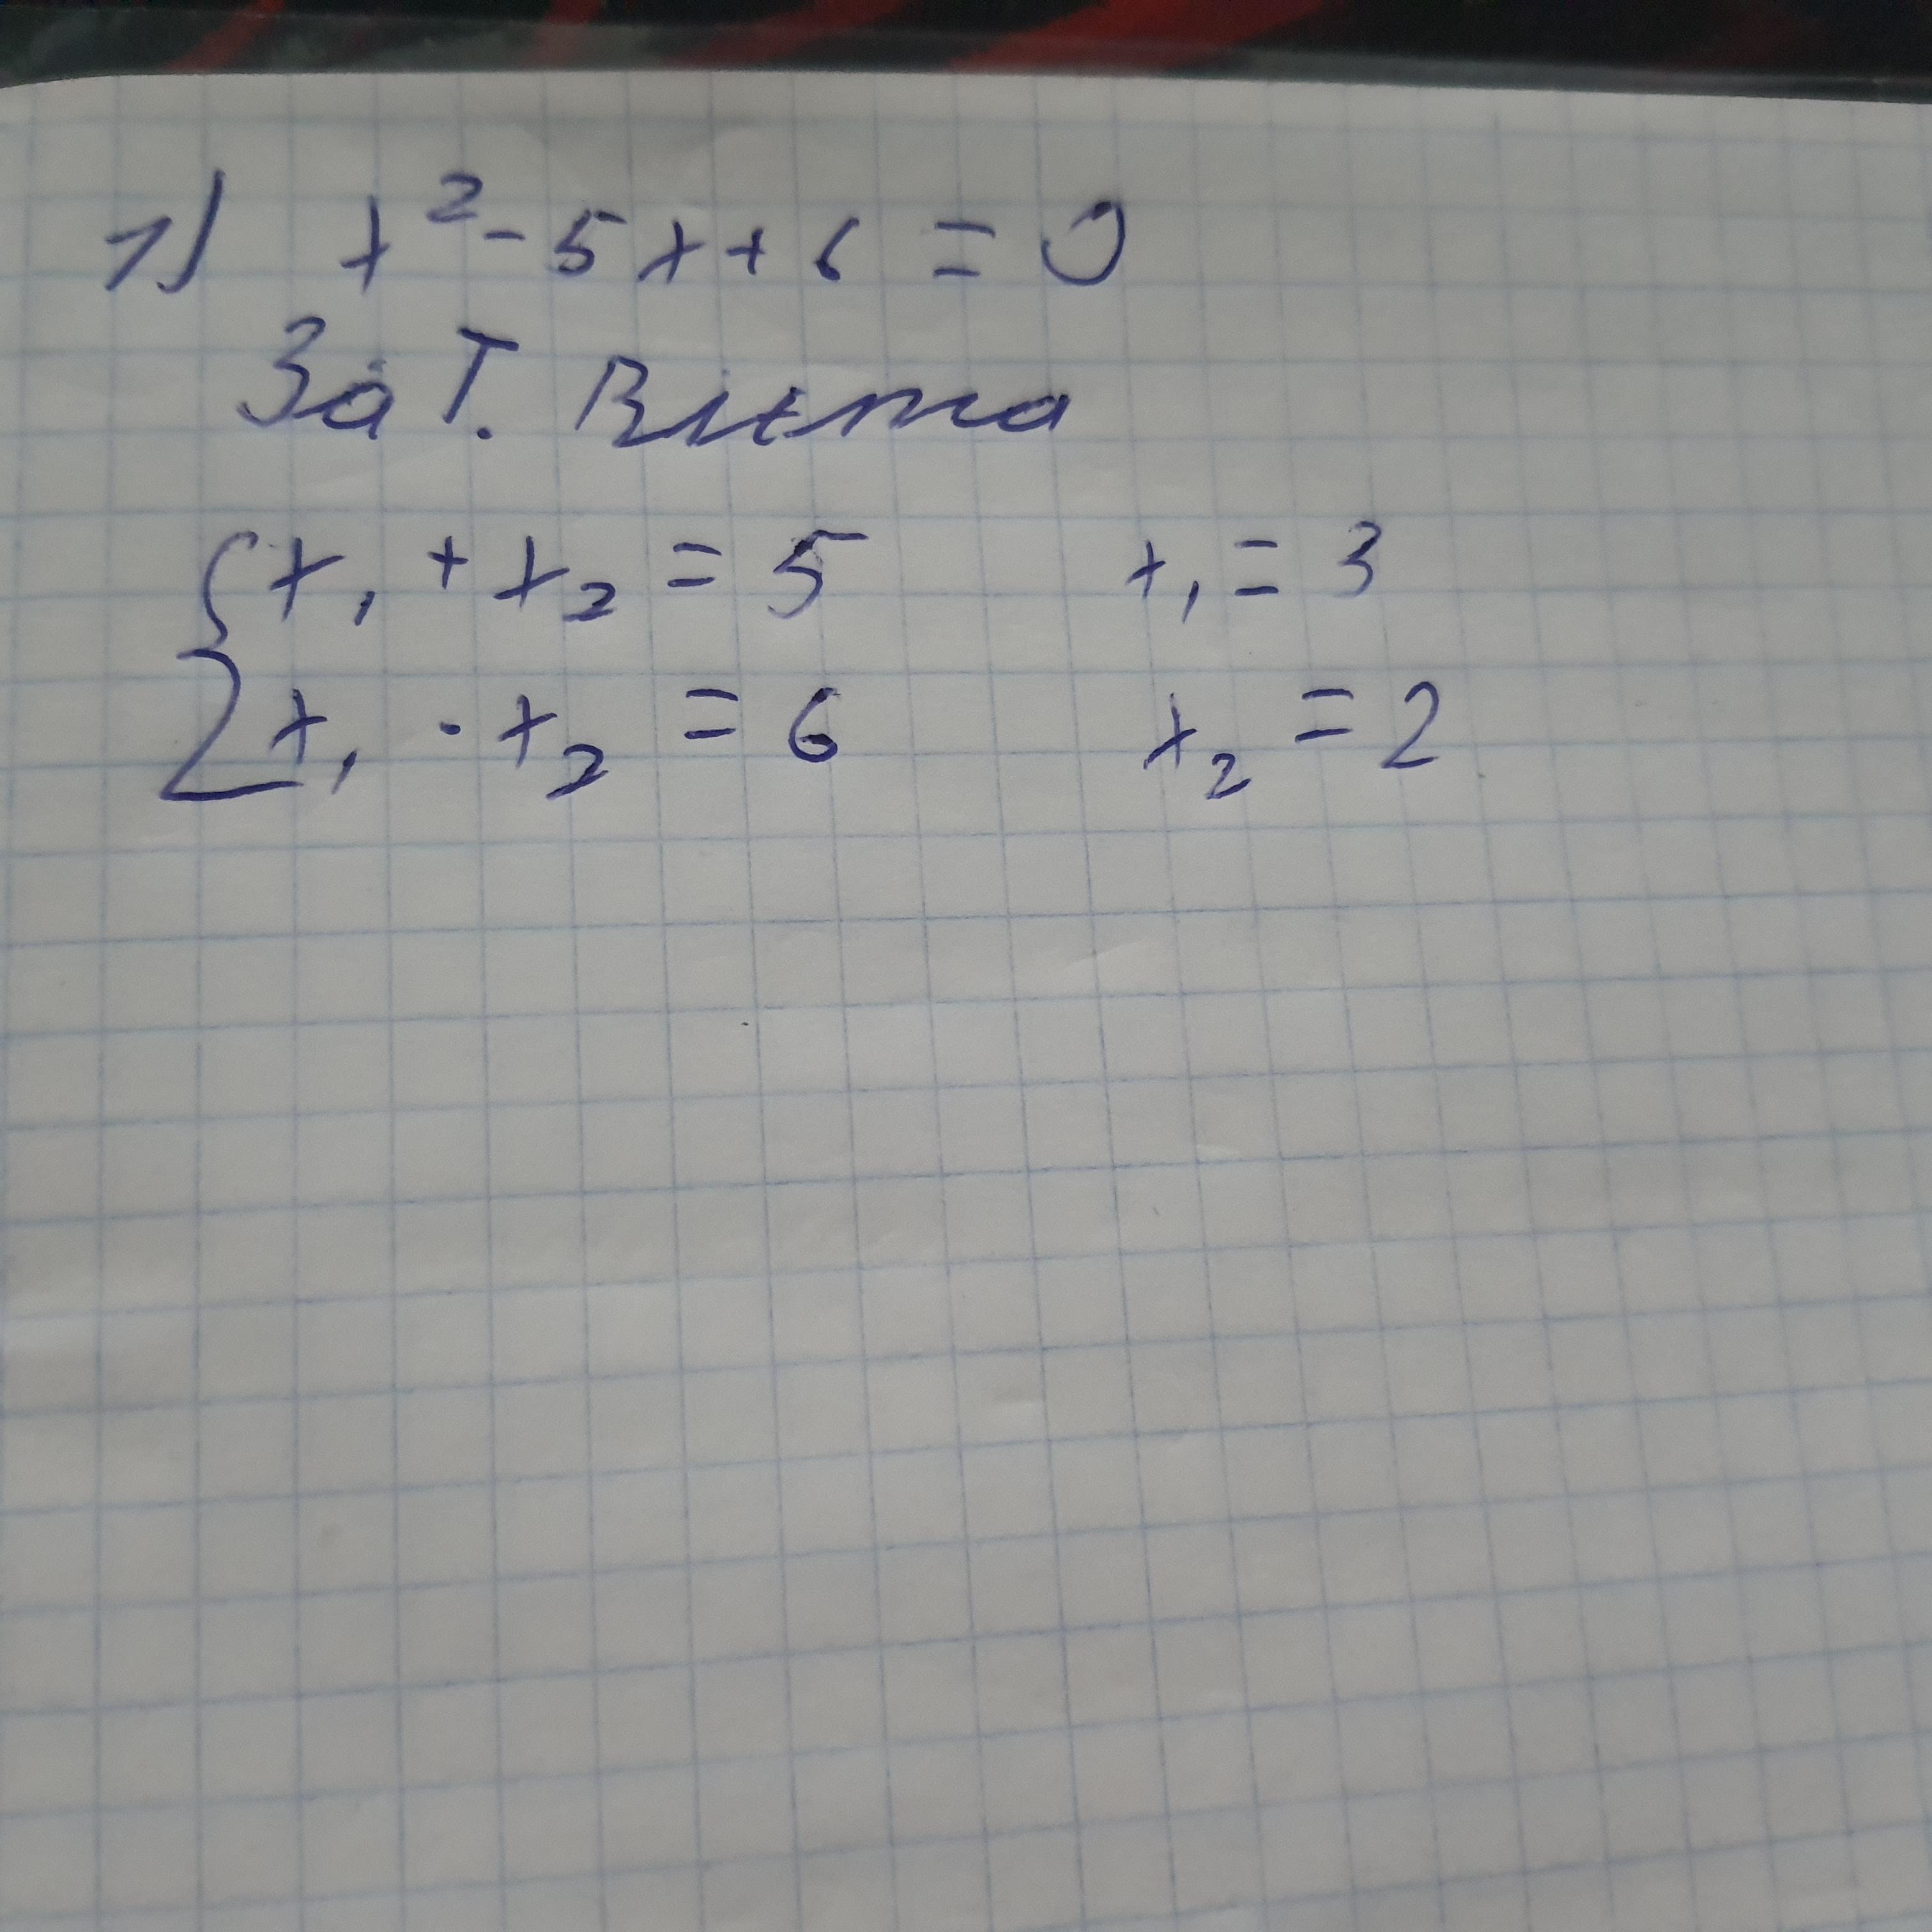 1) x² - 5x + 6 = 0
За Т. Вієта
{ x₁ + x₂ = 5 x₁ = 3
x₁ · x₂ = 6 x₂ = 2